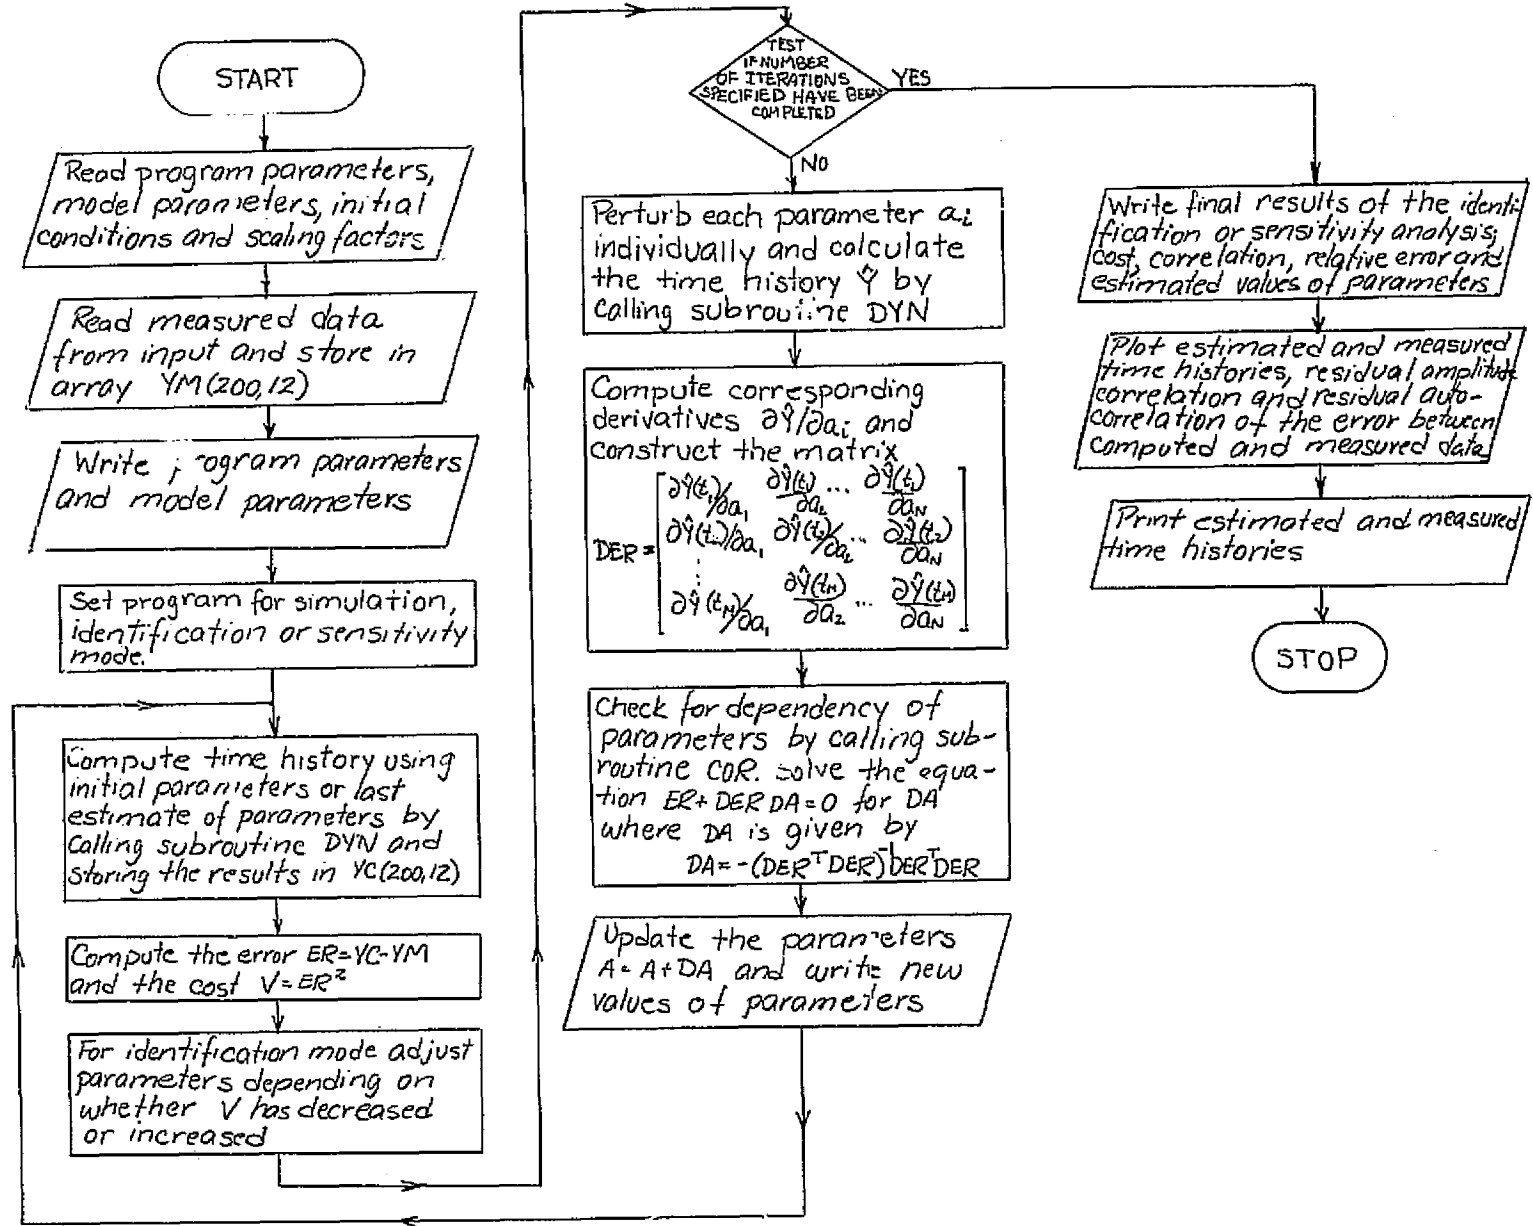 START
Read program parameters,
model parameters, initial
conditions and scaling factors
Read measured data
from input and store in
array YM(200,12)
Write program parameters
and model parameters
Set program for simulation,
identification or sensitivity
mode.
Compute time history using
initial parameters or last
estimate of parameters by
calling subroutine DYN and
storing the results in YC(200,12)
Compute the error ER=YC-YM
and the cost V=ER²
For identification mode adjust
parameters depending on
whether V has decreased
or increased
TEST
IF NUMBER
OF ITERATIONS
SPECIFIED HAVE BEEN
COMPLETED
YES
NO
Perturb each parameter aᵢ
individually and calculate
the time history Ŷ by
calling subroutine DYN
Compute corresponding
derivatives ∂Ŷ/∂aᵢ and
construct the matrix
∂Ŷ(t₁)/∂a₁ ∂Ŷ(t₁)/∂a₂ ... ∂Ŷ(t₁)/∂a_N
DER = ∂Ŷ(t₂)/∂a₁ ∂Ŷ(t₂)/∂a₂ ... ∂Ŷ(t₂)/∂a_N
⋮
∂Ŷ(t_M)/∂a₁ ∂Ŷ(t_M)/∂a₂ ... ∂Ŷ(t_M)/∂a_N
Check for dependency of
parameters by calling sub-
routine COR. Solve the equa-
tion ER+DER DA=0 for DA
where DA is given by
DA=-(DERᵀDER)⁻¹DERᵀDER
Update the parameters
A=A+DA and write new
values of parameters
Write final results of the identi-
fication or sensitivity analysis;
cost, correlation, relative error and
estimated values of parameters
Plot estimated and measured
time histories, residual amplitude
correlation and residual auto-
correlation of the error between
computed and measured data
Print estimated and measured
time histories
STOP